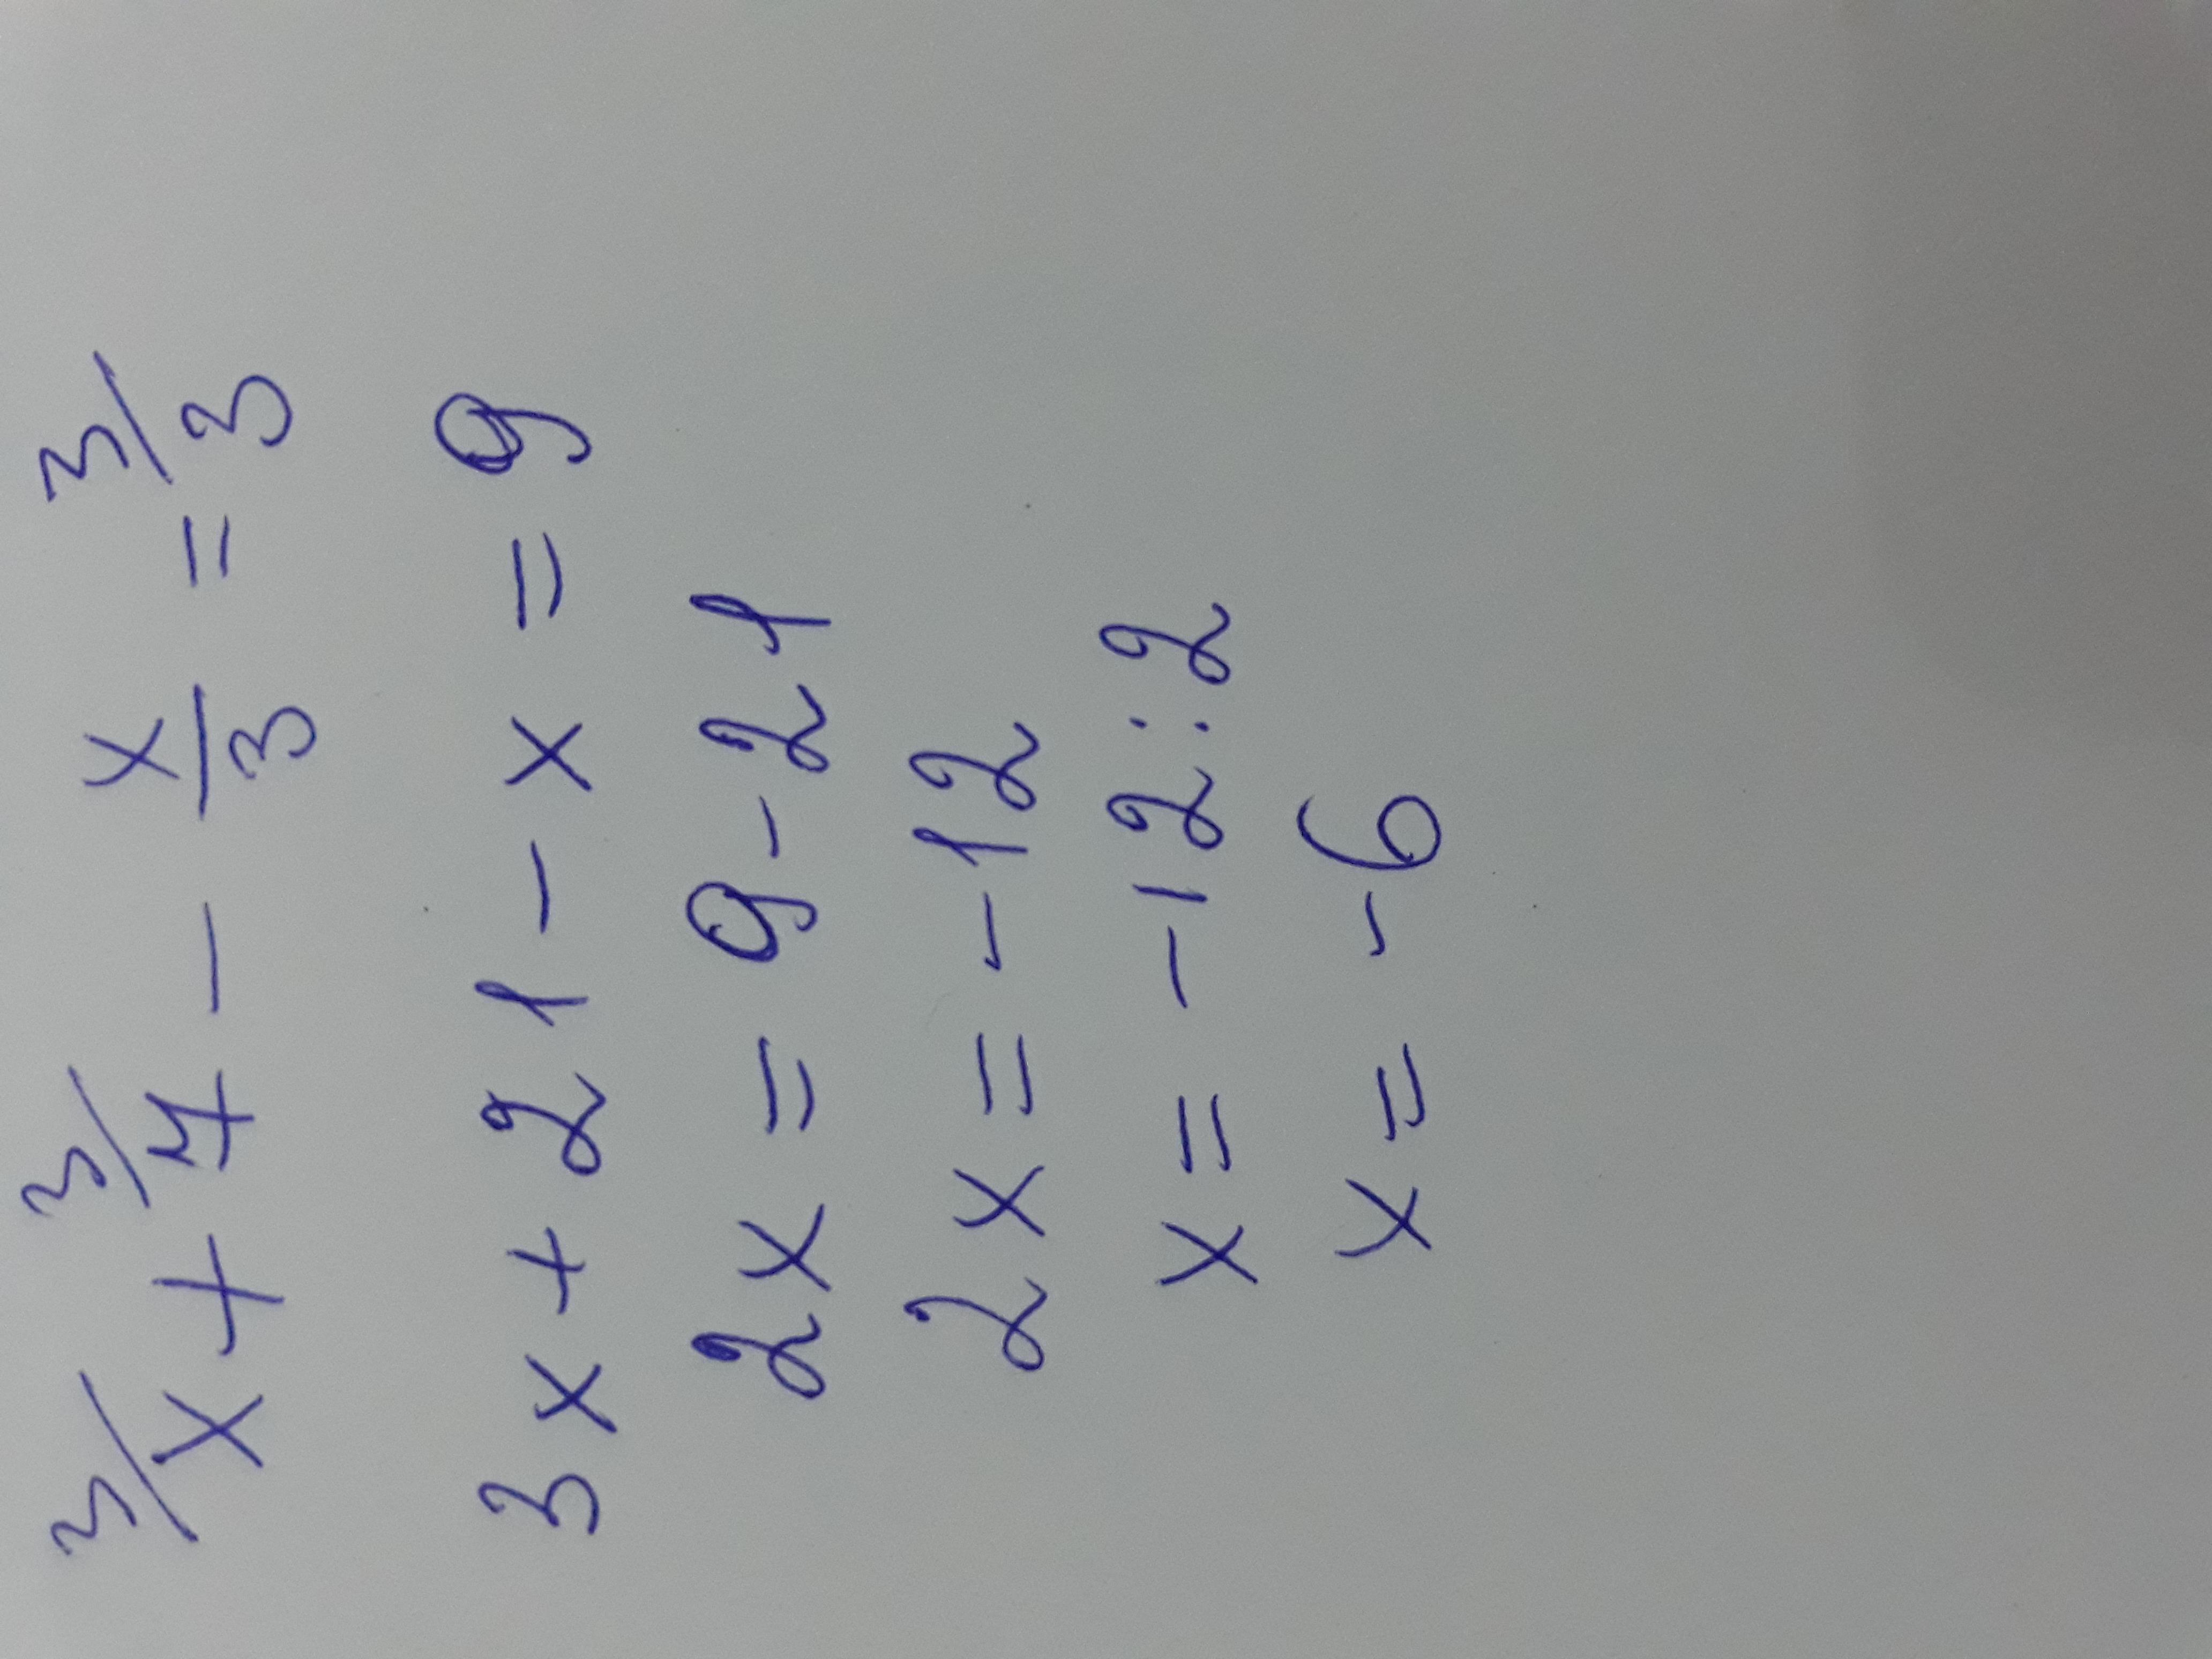 3/x + 3/7 - x/3 = 3/3
3x + 21 - x = 9
2x = 9 - 21
2x = - 12
x = - 12 : 2
x = - 6